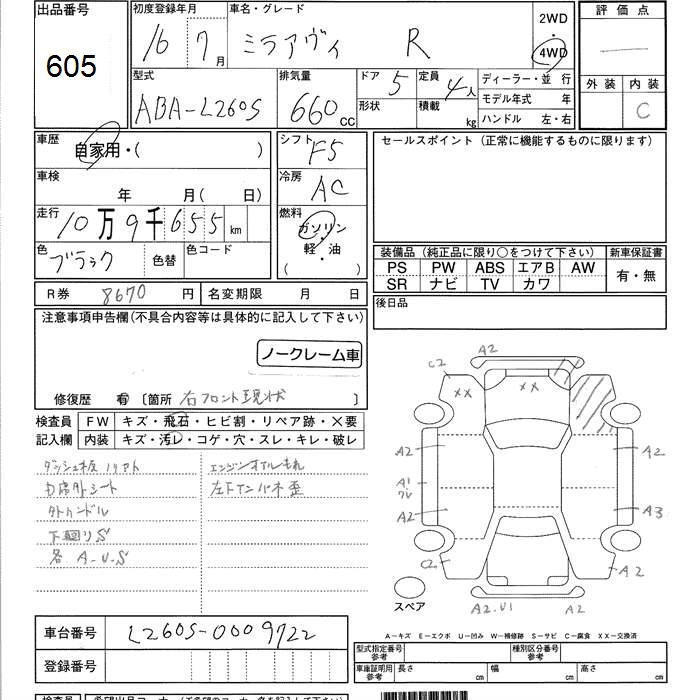 出品番号 初度登録年月 車名・グレード 2WD 評価点
605 16 7月 ミラアヴィ R 4WD
型式 排気量 ドア 5 定員 4人 ディーラー・並行 外装 内装
ABA-L260S 660 CC 形状 積載 kg モデル年式 年 C
ハンドル 左・右
車歴 自家用・( ) シフト F5 セールスポイント (正常に機能するものに限ります)
車検 年 月(日) 冷房 AC
走行 10万9千655km 燃料 ガソリン・軽・油 ( )
色 ブラック 色替 色コード
装備品 (純正品に限り○をつけて下さい) 新車保証書
PS PW ABS エアB AW 有・無
SR ナビ TV カワ
R券 8670 円 名変期限 月 日 後日品
注意事項申告欄(不具合内容等は具体的に記入して下さい)
ノークレーム車
修復歴 有 〔箇所 右フロント現状 〕
検査員 FW キズ・飛石・ヒビ割・リペア跡・×要
記入欄 内装 キズ・汚レ・コゲ・穴・スレ・キレ・破レ
エンジンオイルもれ
外ハンドル
下廻りS
各 A.U.S
C2 A2
XX XX
A2 A2
A1
A2 A3
C2 A2
スペア A2.U1 A2
A-キズ E-エクボ U-凹み W-補修跡 S-サビ C-腐食 XX-交換済
車台番号 L260S-0009722
型式指定番号 参考 種別区分番号 参考
登録番号 車庫証明用 参考 長さ cm 幅 cm 高さ cm